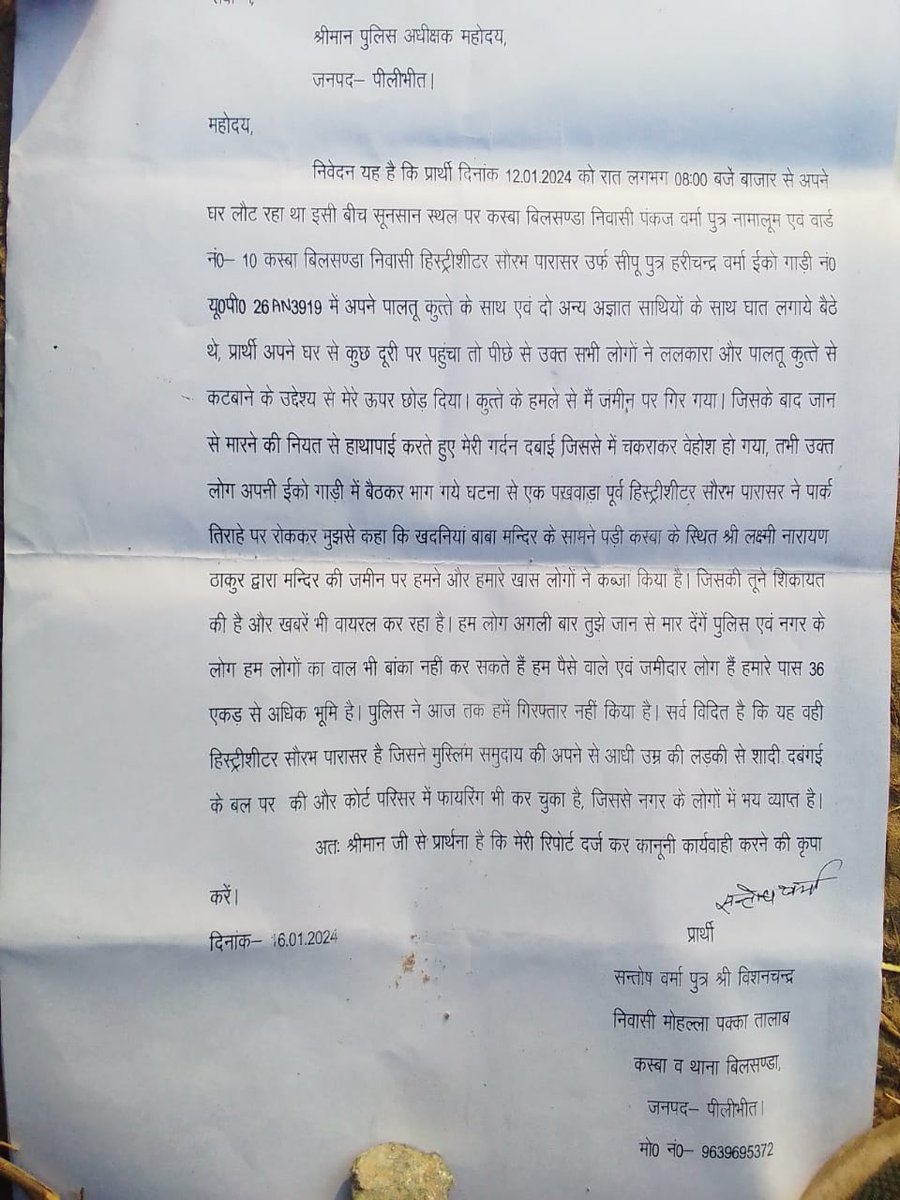 श्रीमान पुलिस अधीक्षक महोदय,
जनपद– पीलीभीत।
महोदय,
निवेदन यह है कि प्रार्थी दिनांक 12.01.2024 को रात लगभग 08:00 बजे बाजार से अपने
घर लौट रहा था इसी बीच सूनसान स्थल पर कस्बा बिलसण्डा निवासी पंकज वर्मा पुत्र नामालूम एवं वार्ड
नं0– 10 कस्बा बिलसण्डा निवासी हिस्ट्रीशीटर सौरभ पारासर उर्फ सीपू पुत्र हरीचन्द्र वर्मा ईको गाड़ी नं0
यू0पी0 26AN3919 में अपने पालतू कुत्ते के साथ एवं दो अन्य अज्ञात साथियों के साथ घात लगाये बैठे
थे, प्रार्थी अपने घर से कुछ दूरी पर पहुंचा तो पीछे से उक्त सभी लोगों ने ललकारा और पालतू कुत्ते से
कटबाने के उद्देश्य से मेरे ऊपर छोड़ दिया। कुत्ते के हमले से मैं जमीन पर गिर गया। जिसके बाद जान
से मारने की नियत से हाथापाई करते हुए मेरी गर्दन दबाई जिससे में चकराकर वेहोश हो गया, तभी उक्त
लोग अपनी ईको गाड़ी में बैठकर भाग गये घटना से एक पखवाड़ा पूर्व हिस्ट्रीशीटर सौरभ पारासर ने पार्क
तिराहे पर रोककर मुझसे कहा कि खदनियां बाबा मन्दिर के सामने पड़ी कस्वा के स्थित श्री लक्ष्मी नारायण
ठाकुर द्वारा मन्दिर की जमीन पर हमने और हमारे खास लोगों ने कब्जा किया है। जिसकी तूने शिकायत
की है और खबरें भी वायरल कर रहा है। हम लोग अगली बार तुझे जान से मार देंगें पुलिस एवं नगर के
लोग हम लोगों का वाल भी बांका नहीं कर सकते हैं हम पैसे वाले एवं जमीदार लोग हैं हमारे पास 36
एकड़ से अधिक भूमि है। पुलिस ने आज तक हमें गिरफ्तार नहीं किया है। सर्व विदित है कि यह वही
हिस्ट्रीशीटर सौरभ पारासर है जिसने मुस्लिम समुदाय की अपने से आधी उम्र की लड़की से शादी दबंगई
के बल पर की और कोर्ट परिसर में फायरिंग भी कर चुका है, जिससे नगर के लोगों में भय व्याप्त है।
अतः श्रीमान जी से प्रार्थना है कि मेरी रिपोर्ट दर्ज कर कानूनी कार्यवाही करने की कृपा
करें।
सन्तोष वर्मा
दिनांक– 16.01.2024
प्रार्थी
सन्तोष वर्मा पुत्र श्री विशनचन्द्र
निवासी मोहल्ला पक्का तालाब
कस्बा व थाना बिलसण्डा,
जनपद– पीलीभीत।
मो0 नं0– 9639695372